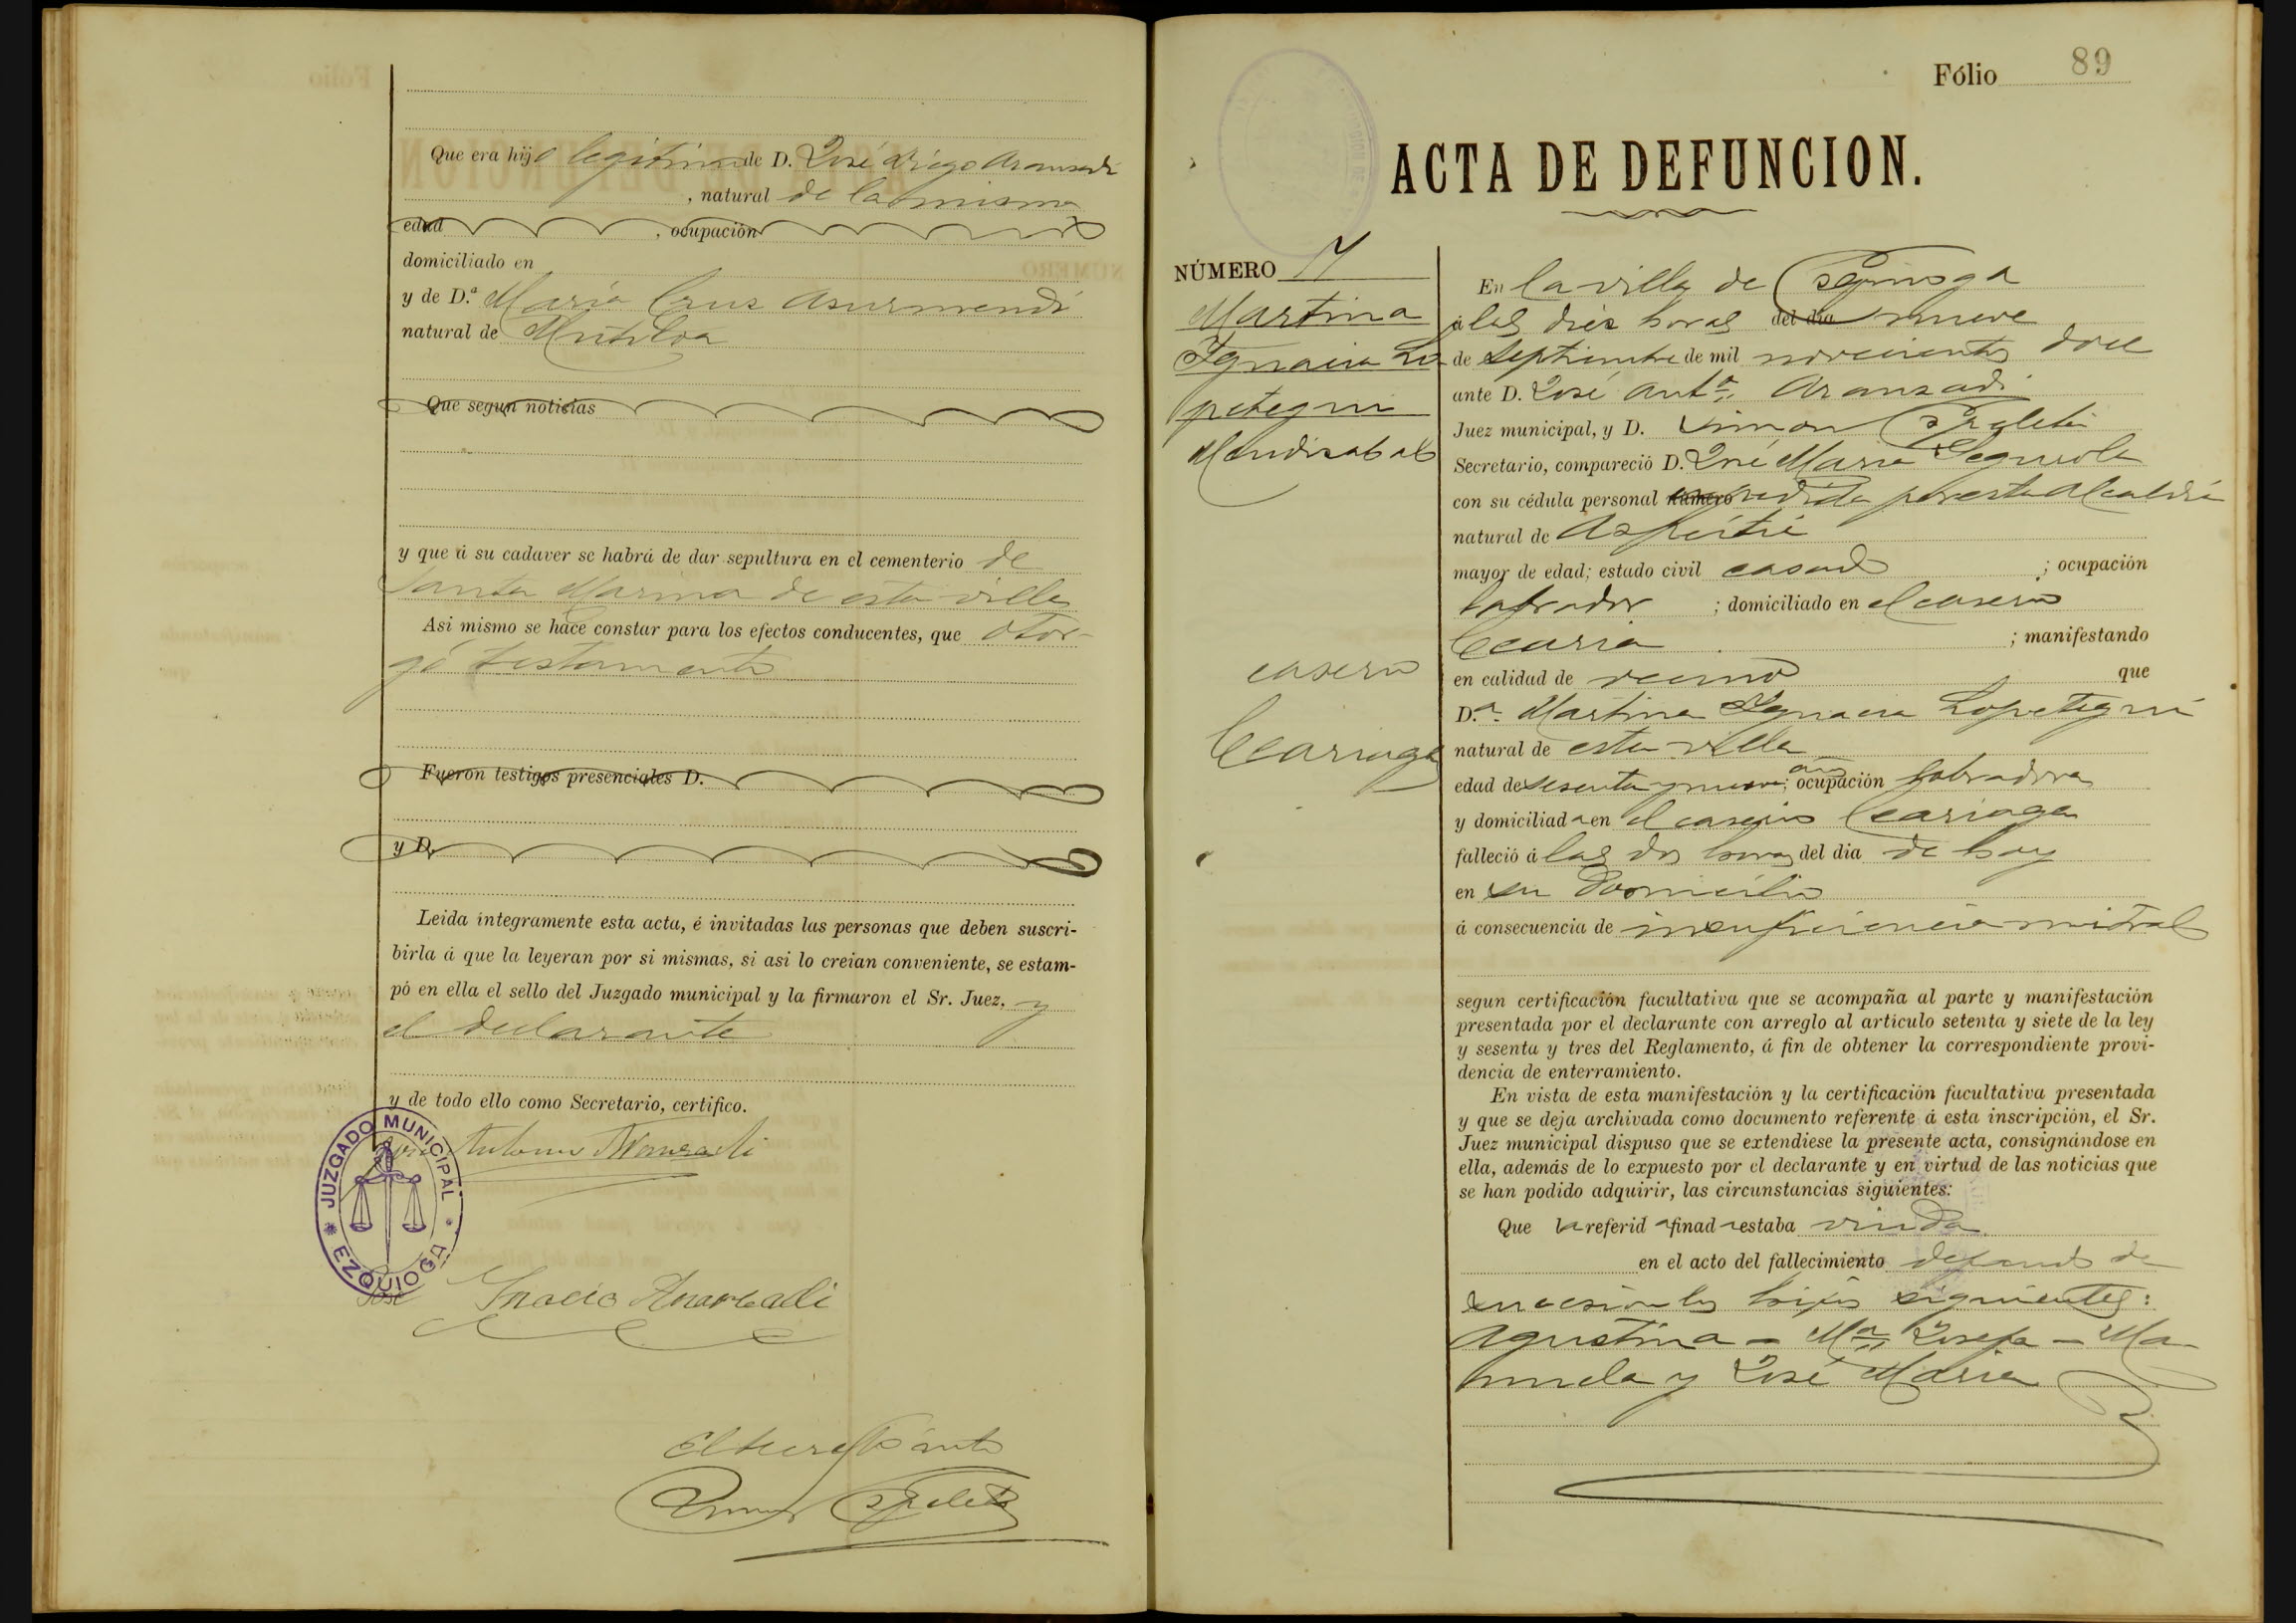 Que era hijo legítimo de D. José Diego Aransadi
, natural de la misma
edad , ocupación
domiciliado en
y de D.ª María Cruz Asurmendi
natural de Mutiloa
Que segun noticias
y que á su cadaver se habrá de dar sepultura en el cementerio de
Santa Marina de esta villa
Asi mismo se hace constar para los efectos conducentes, que otor-
gó testamento
Fueron testigos presenciales D.
y D.
Leida íntegramente esta acta, é invitadas las personas que deben suscri-
birla á que la leyeran por si mismas, si asi lo creian conveniente, se estam-
pó en ella el sello del Juzgado municipal y la firmaron el Sr. Juez, y
el declarante
y de todo ello como Secretario, certifico.
José Antonio Aranzadi
JUZGADO MUNICIPAL
EZQUIOGA
José Ignacio Aranzadi
Fólio 89
ACTA DE DEFUNCION.
NÚMERO 17
Martina
Ignacia Lo
petegui
Mendizabal
caserio
Ycariaga
En la villa de Ezquioga
á las diez horas del dia nueve
de Septiembre de mil novecientos doce
ante D. José Antº Aranzadi
Juez municipal, y D. Simon
Secretario, compareció D. José Maria Segurola
con su cédula personal número expedida por esta Alcaldia
natural de Azpeitia
mayor de edad; estado civil casado ; ocupación
labrador ; domiciliado en el caserio
; manifestando
en calidad de vecino que
D.ª Martina Ygnacia Lopetegui
natural de esta villa
edad de sesenta y nueve años; ocupación labradora
y domiciliada en el caserio Ycariaga
falleció á las dos horas del dia de hoy
en su domicilio
á consecuencia de insuficiencia mitral
segun certificación facultativa que se acompaña al parte y manifestación
presentada por el declarante con arreglo al artículo setenta y siete de la ley
y sesenta y tres del Reglamento, á fin de obtener la correspondiente provi-
dencia de enterramiento.
En vista de esta manifestación y la certificación facultativa presentada
y que se deja archivada como documento referente á esta inscripción, el Sr.
Juez municipal dispuso que se extendiese la presente acta, consignándose en
ella, además de lo expuesto por el declarante y en virtud de las noticias que
se han podido adquirir, las circunstancias siguientes:
Que la referida finada estaba viuda
en el acto del fallecimiento dejando de
su los hijos siguientes:
Agustina - Mª Josefa - Ma
nuela y José Maria